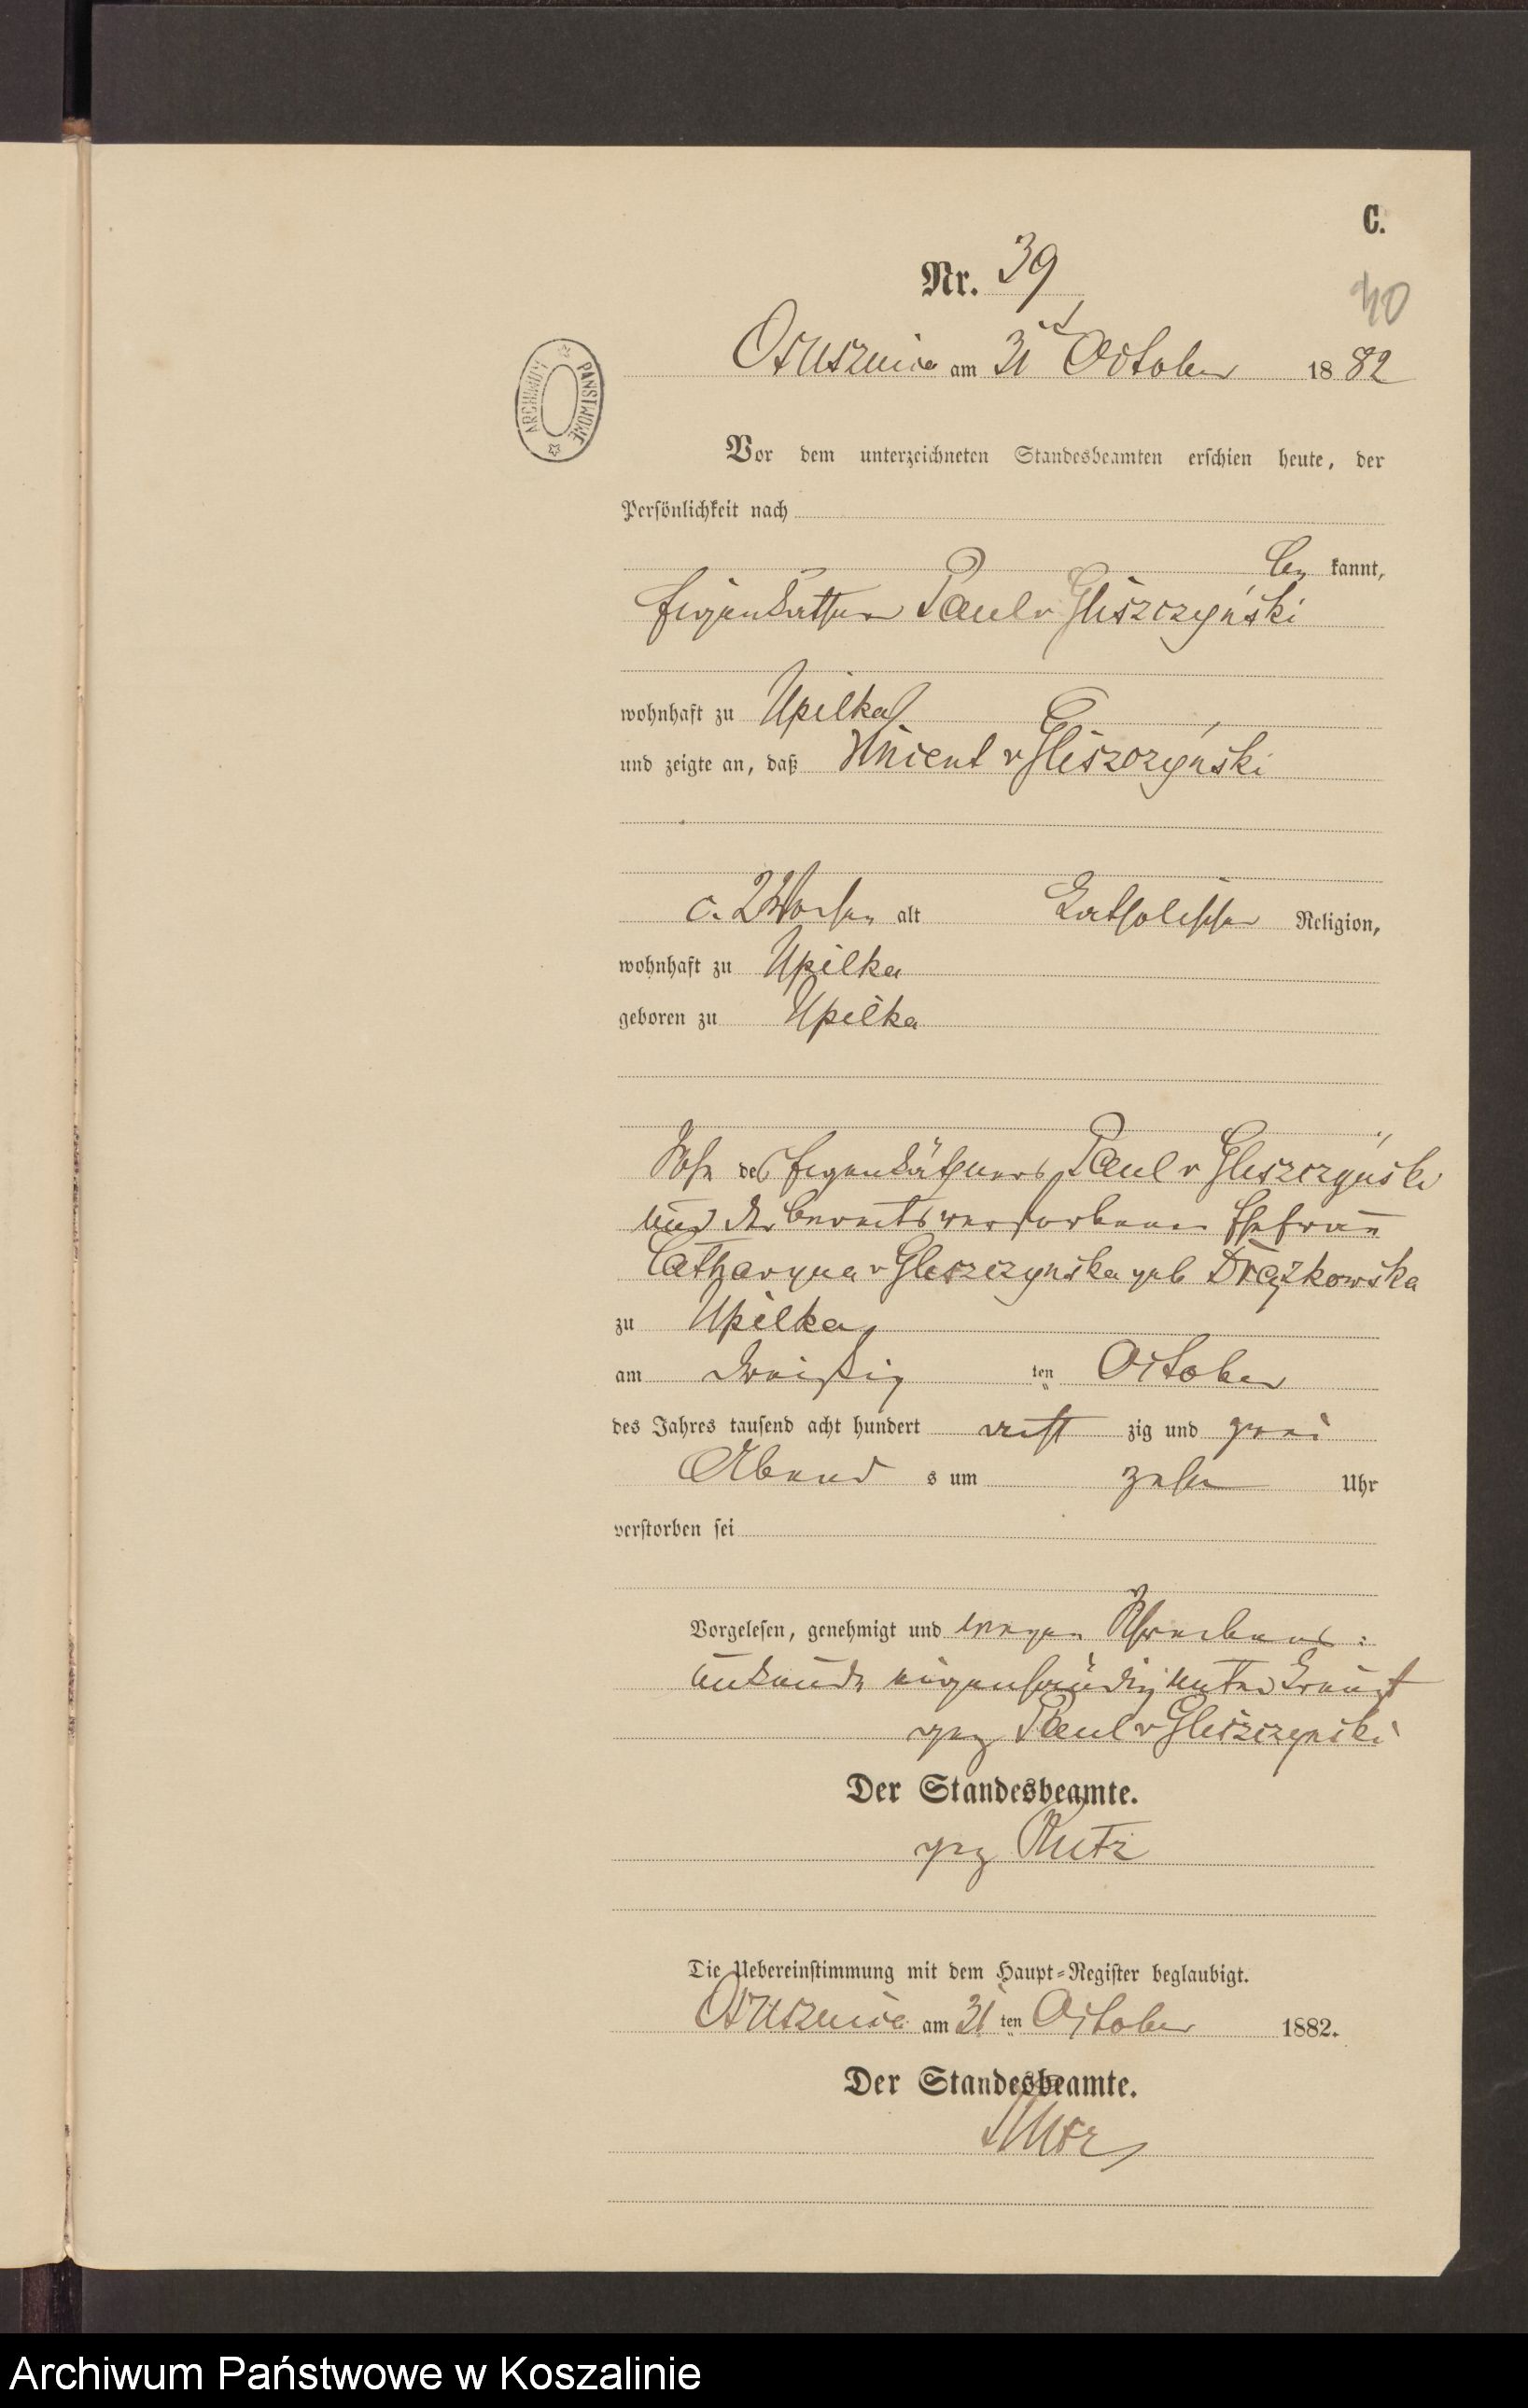 C.
Nr. 39
40
Osuszniça am 31t October 1882
ARCHIWUM PAŃSTWOWE
Vor dem unterzeichneten Standesbeamten erschien heute, der
Persönlichkeit nach
be kannt,
Eigenkäthner Paul v Gliszczyński
wohnhaft zu Upilka
und zeigte an, daß Vincent v Gliszczyński
c. 2 Wochen alt katholischer Religion,
wohnhaft zu Upilka
geboren zu Upilka
Sohn des Eigenkäthners Paul v Gliszczyński
und der bereits verstorbenen Ehefrau
Catharyna v Gliszczynska geb Drążkowska
zu Upilka
am dreißig ten October
des Jahres tausend acht hundert acht zig und zwei
Abend s um zehn Uhr
verstorben sei
Vorgelesen, genehmigt und wegen Schreibens:
unkunde eigenhändig unterkreuzt
gez Paul v Gliszczynski
Der Standesbeamte.
gez Rutz
Die Uebereinstimmung mit dem Haupt=Register beglaubigt.
Osusznica am 31 ten October 1882.
Der Standesbeamte.
Rutz
Archiwum Państwowe w Koszalinie